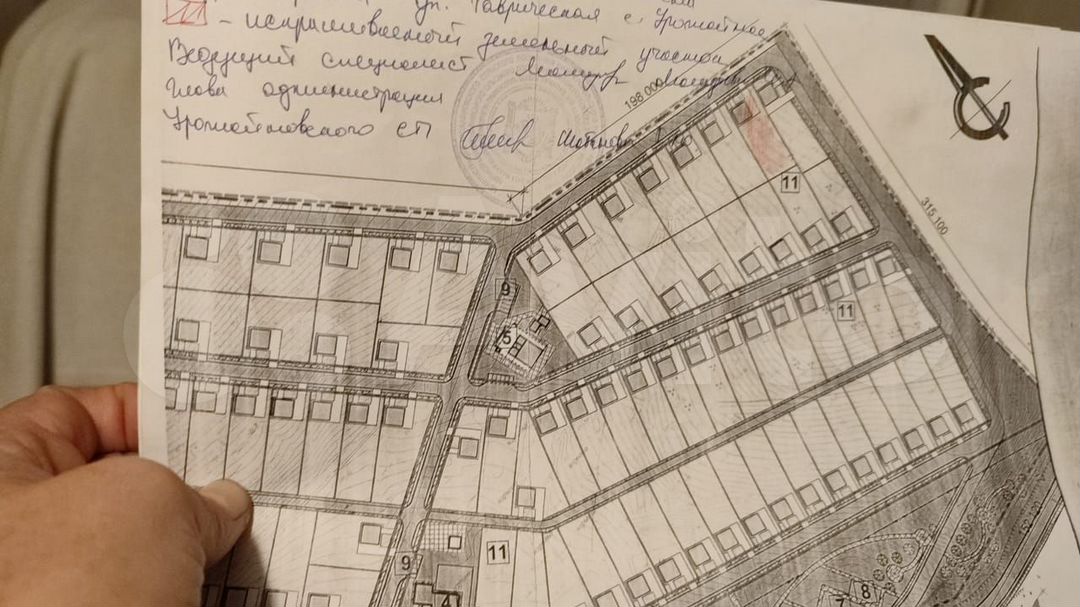 ул. Таврическая с. Урожайное
- испрашиваемый земельный участок
Ведущий специалист
Глава администрации
Урожайновского СП
198 000
315 100
11
9
5
11
11
9
4
8
7